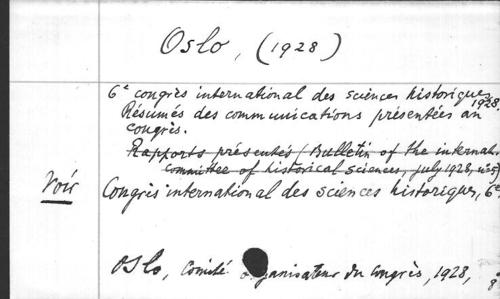 Oslo, (1928)
6e congrès international des sciences historiques, 1928.
Résumés des communications présentées au
congrès.
Rapports présentés (Bulletin of the internat.
committee of historical sciences, july 1928, n°5)
Voir Congrès international des sciences historiques, 6e
Oslo, Comité organisateur du Congrès, 1928,
8°